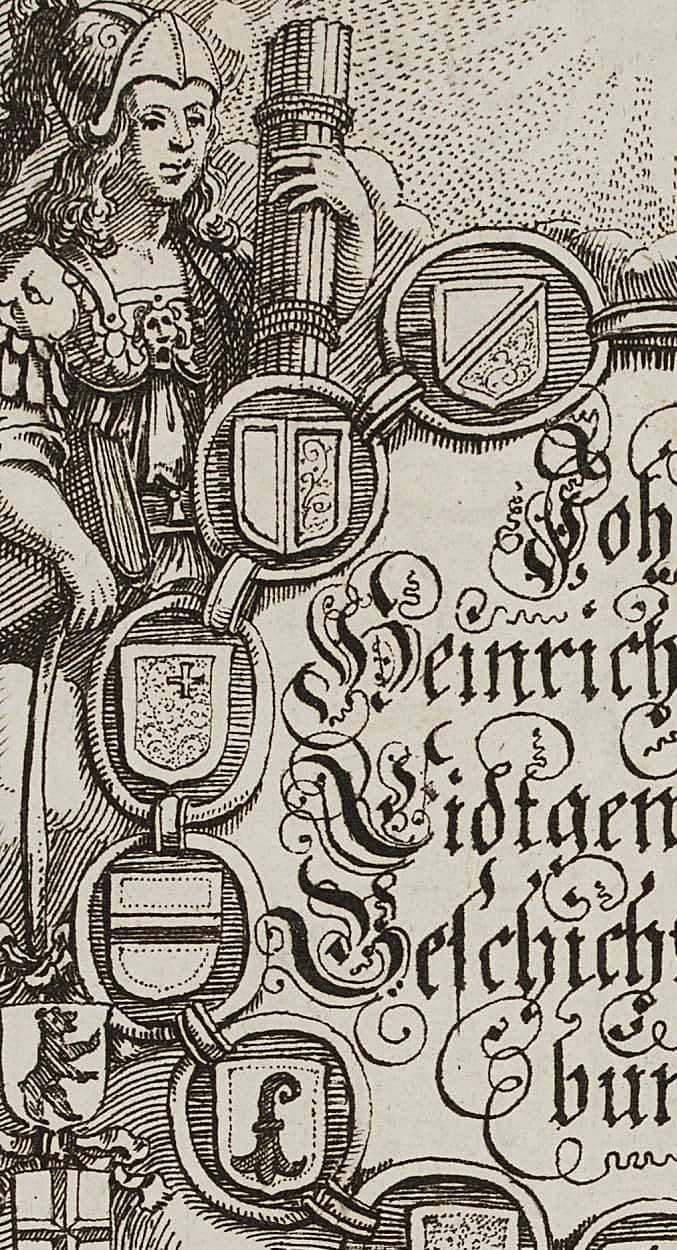 Joh
Heinrich
Eidtgen
Geschicht
bun